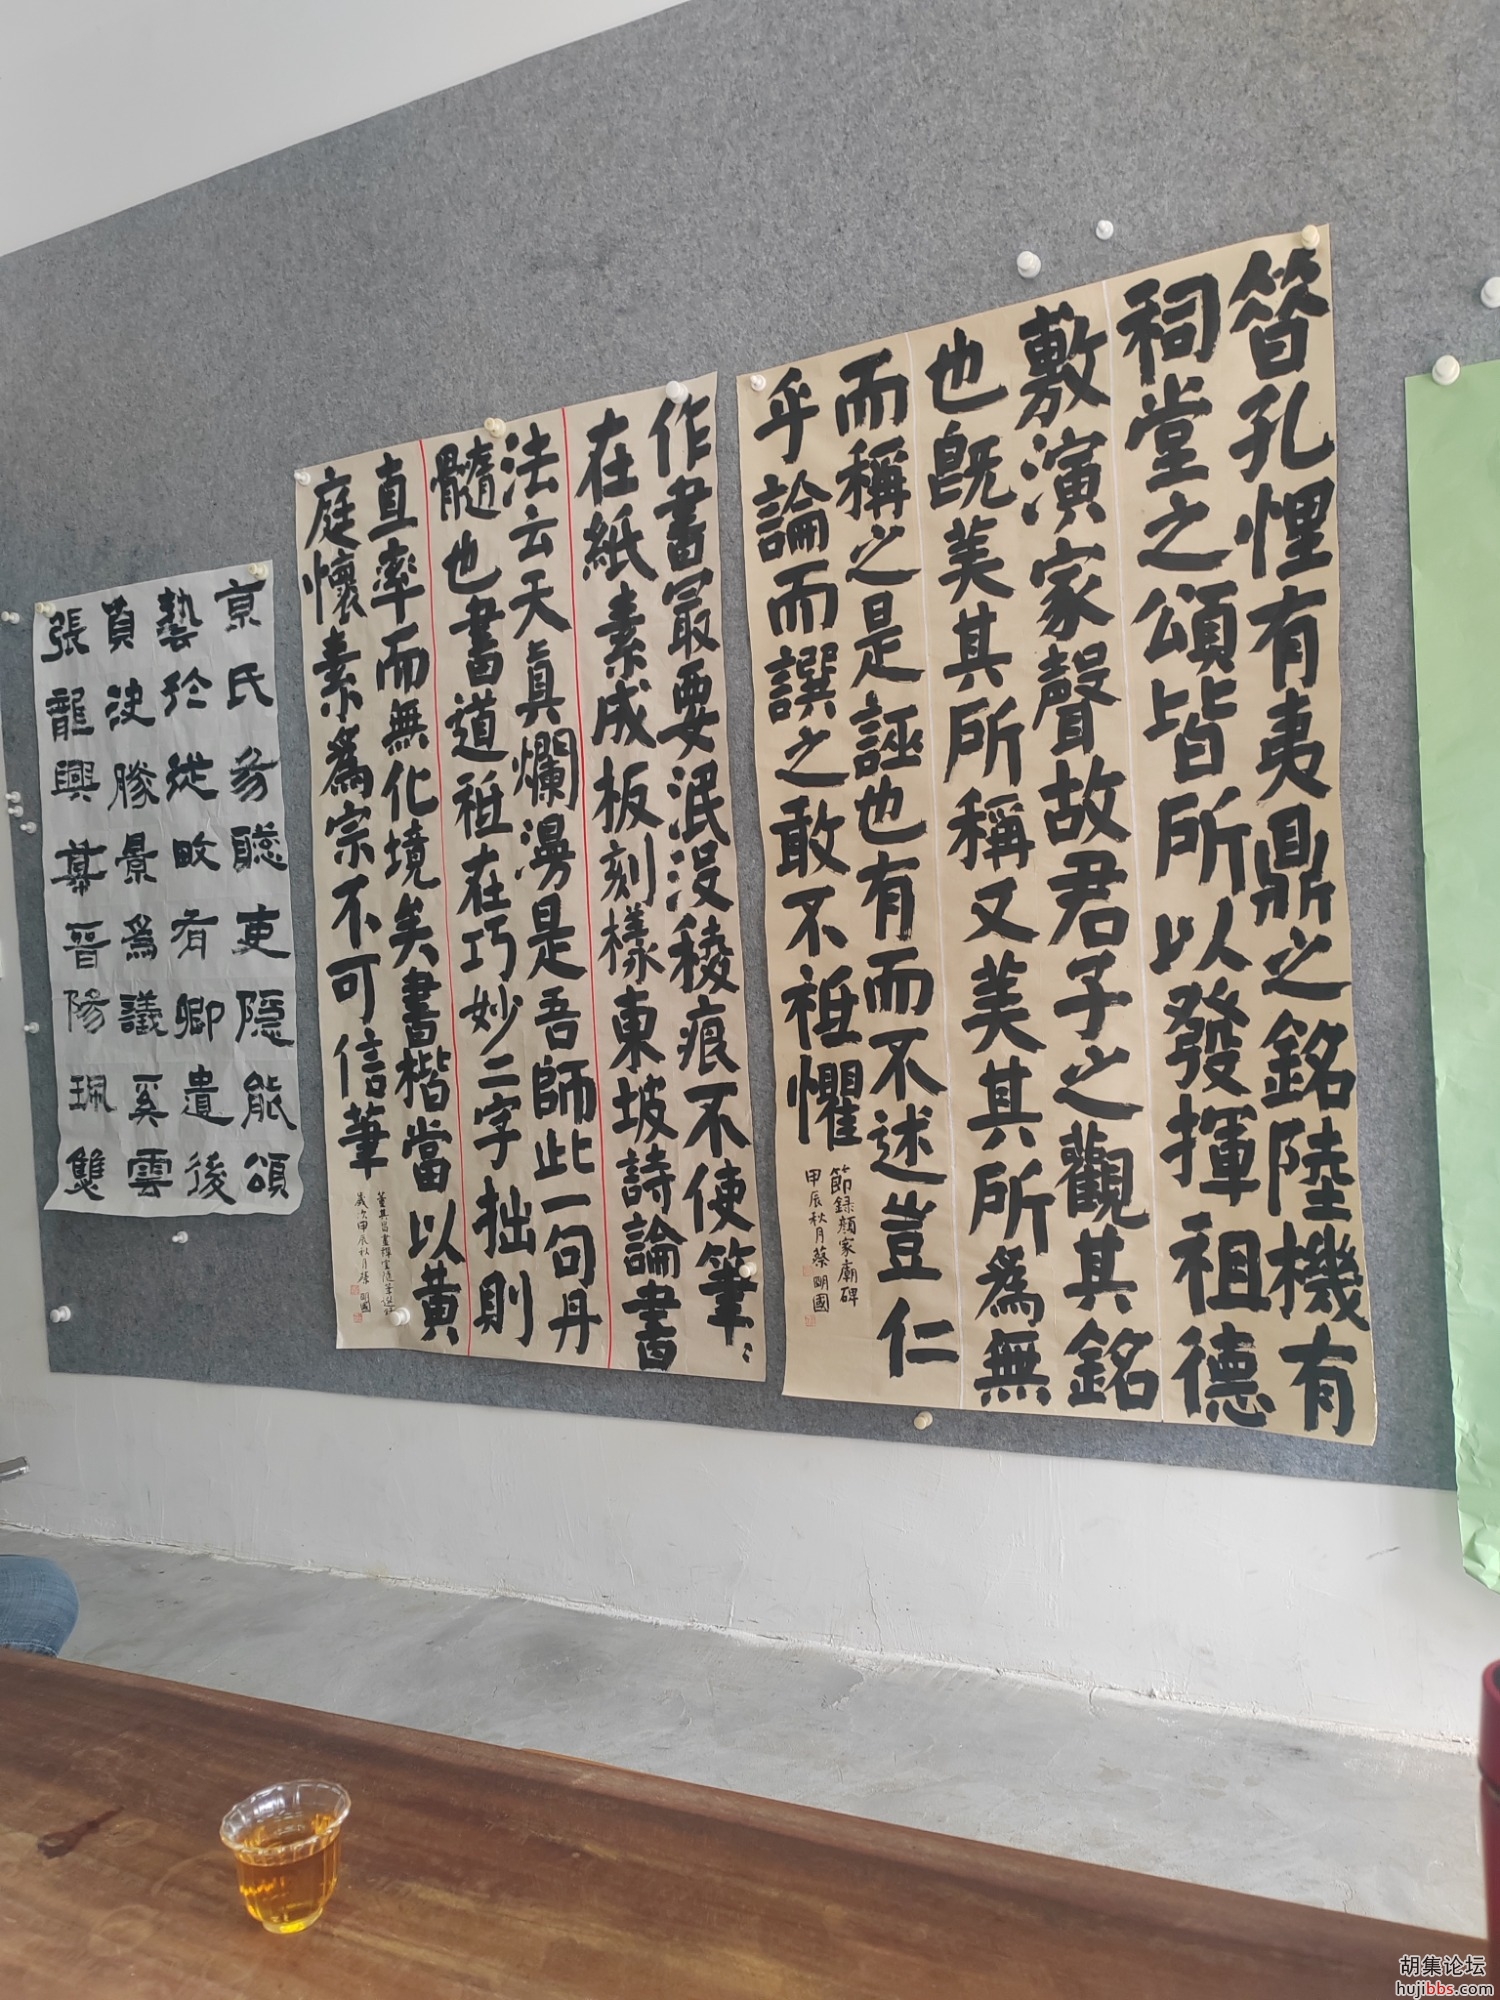 昝孔悝有夷鼎之銘陸機有
祠堂之頌皆所以發揮祖德
敷演家聲故君子之觀其銘
也既美其所稱又美其所為無
而稱之是誣也有而不述豈仁
乎論而譔之敢不祗懼
節録顔家廟碑
甲辰秋月蔡明國
作書最要泯没稜痕不使筆〻
在紙素成板刻樣東坡詩論書
法云天真爛漫是吾師此一句丹
髓也書道祗在巧妙二字拙則
直率而無化境矣書楷當以黃
庭懷素為宗不可信筆
董其昌畫禪室隨筆選
歲次甲辰秋月蔡明國
京氏易聽吏隱能頌
藝於從畋有卿遺後
張龍興幕晉陽珮雙
胡集论坛
hujibbs.com